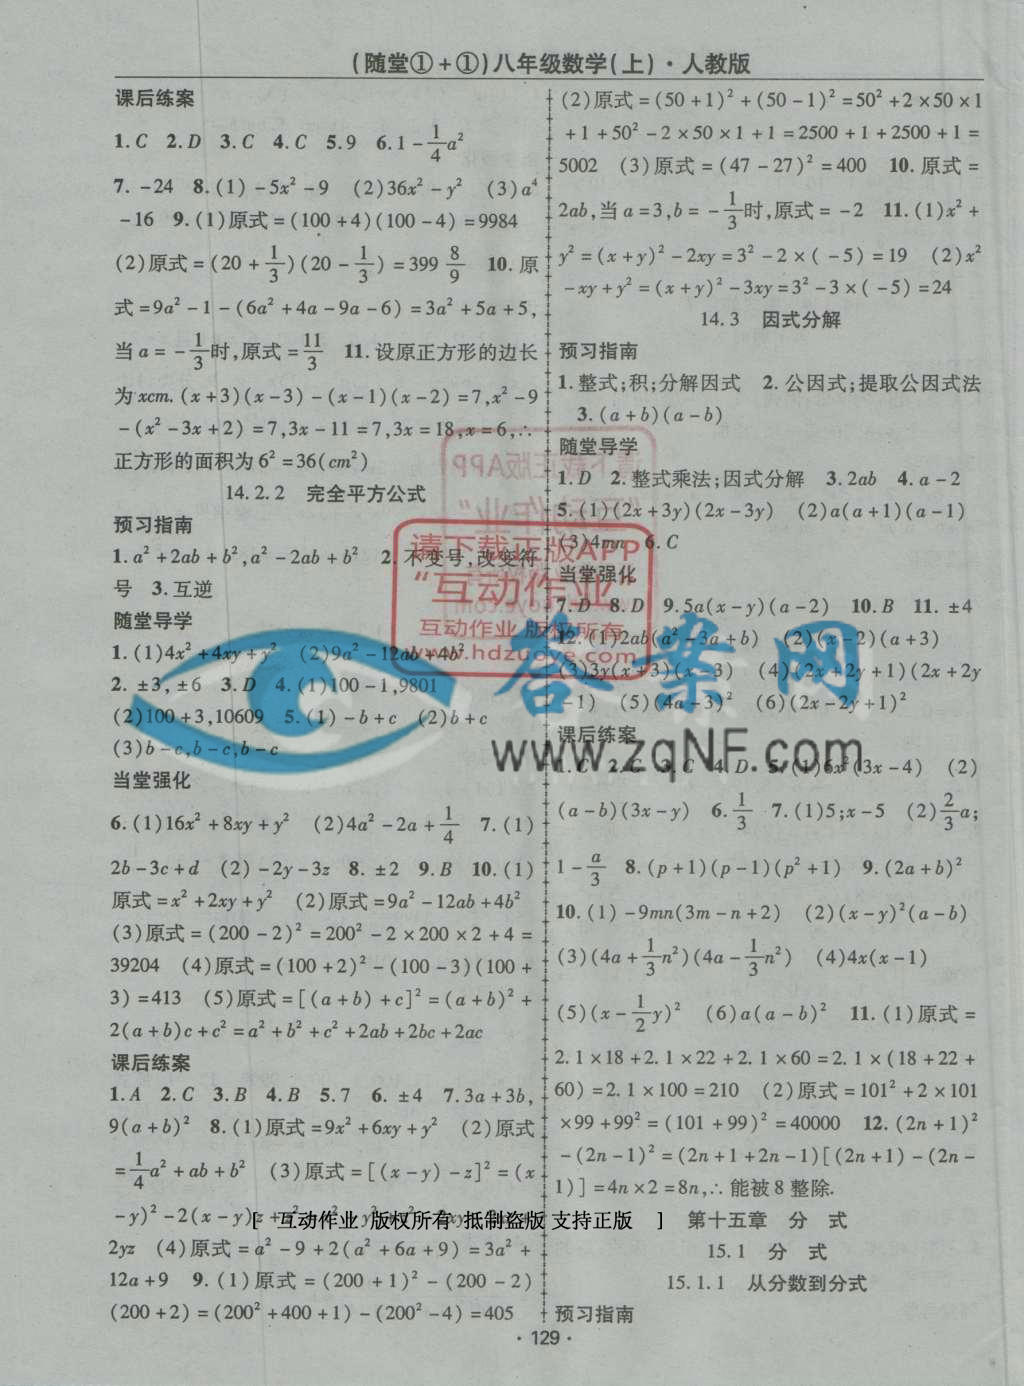 (随堂①+①)八年级数学(上)·人教版
课后练案
1.C 2.D 3.C 4.C 5.9 6.1-1/4a²
7.-24 8.(1)-5x²-9 (2)36x²-y² (3)a⁴
-16 9.(1)原式=(100+4)(100-4)=9984
(2)原式=(20+1/3)(20-1/3)=399 8/9 10.原
式=9a²-1-(6a²+4a-9a-6)=3a²+5a+5,
当a=-1/3时,原式=11/3 11.设原正方形的边长
为xcm.(x+3)(x-3)-(x-1)(x-2)=7,x²-9
-(x²-3x+2)=7,3x-11=7,3x=18,x=6,∴
正方形的面积为6²=36(cm²)
14.2.2 完全平方公式
预习指南
1.a²+2ab+b²,a²-2ab+b² 2.不变号,改变符
号 3.互逆
随堂导学
1.(1)4x²+4xy+y² (2)9a²-12ab+4b²
2.±3,±6 3.D 4.(1)100-1,9801
(2)100+3,10609 5.(1)-b+c (2)b+c
(3)b-c,b-c,b-c
当堂强化
6.(1)16x²+8xy+y² (2)4a²-2a+1/4 7.(1)
2b-3c+d (2)-2y-3z 8.±2 9.B 10.(1)
原式=x²+2xy+y² (2)原式=9a²-12ab+4b²
(3)原式=(200-2)²=200²-2×200×2+4=
39204 (4)原式=(100+2)²-(100-3)(100+
3)=413 (5)原式=[(a+b)+c]²=(a+b)²+
2(a+b)c+c²=a²+b²+c²+2ab+2bc+2ac
课后练案
1.A 2.C 3.B 4.B 5.7 6.±4 7.3a+3b,
9(a+b)² 8.(1)原式=9x²+6xy+y² (2)原式
=1/4a²+ab+b² (3)原式=[(x-y)-z]²=(x
-y)²-2(x-y)z+
2yz (4)原式=a²-9+2(a²+6a+9)=3a²+
12a+9 9.(1)原式=(200+1)²-(200-2)
(200+2)=(200²+400+1)-(200²-4)=405
(2)原式=(50+1)²+(50-1)²=50²+2×50×1
+1+50²-2×50×1+1=2500+1+2500+1=
5002 (3)原式=(47-27)²=400 10.原式=
2ab,当a=3,b=-1/3时,原式=-2 11.(1)x²+
y²=(x+y)²-2xy=3²-2×(-5)=19 (2)x²
-xy+y²=(x+y)²-3xy=3²-3×(-5)=24
14.3 因式分解
预习指南
1.整式;积;分解因式 2.公因式;提取公因式法
3.(a+b)(a-b)
随堂导学
1.D 2.整式乘法;因式分解 3.2ab 4.a-2
5.(1)(2x+3y)(2x-3y) (2)a(a+1)(a-1)
(3)4mn 6.C
当堂强化
7.D 8.D 9.5a(x-y)(a-2) 10.B 11.±4
12.(1)2ab(a²-3a+b) (2)(x-2)(a+3)
(3)3y(x+3)(x-3) (4)(2x+2y+1)(2x+2y
-1) (5)(4a-3)² (6)(2x-2y+1)²
课后练案
1.C 2.C 3.C 4.D 5.(1)6x²(3x-4) (2)
(a-b)(3x-y) 6.1/3 7.(1)5;x-5 (2)2/3a;
1-a/3 8.(p+1)(p-1)(p²+1) 9.(2a+b)²
10.(1)-9mn(3m-n+2) (2)(x-y)²(a-b)
(3)(4a+1/3n²)(4a-1/3n²) (4)4x(x-1)
(5)(x-1/2y)² (6)a(a-b)² 11.(1)原式=
2.1×18+2.1×22+2.1×60=2.1×(18+22+
60)=2.1×100=210 (2)原式=101²+2×101
×99+99²=(101+99)²=40000 12.(2n+1)²
-(2n-1)²=(2n+1+2n-1)[(2n+1)-(2n-
1)]=4n×2=8n,∴能被8整除.
第十五章 分 式
15.1 分 式
15.1.1 从分数到分式
预习指南
·129·
请下载正版APP
“互动作业”
互动作业 版权所有
www.hdzuoye.com
答案网
www.zqNF.com
[ 互动作业 版权所有 抵制盗版 支持正版 ]